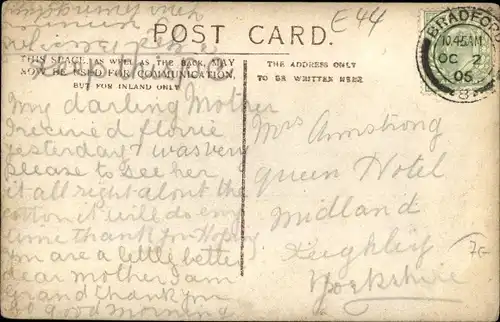 E44
POST CARD.
THIS SPACE, AS WELL AS THE BACK, MAY
NOW BE USED FOR COMMUNICATION,
BUT FOR INLAND ONLY
THE ADDRESS ONLY
TO BE WRITTEN HERE
BRADFORD
10.45AM
OC 2
05
My darling Mother
I recived florrie
yesterday I was very
please to see her
it all right about the
cotton it will do any
time thank you Hope
you are a little better
dear mother I am
grand thank you
good morning
Mrs Armstrong
Queen Hotel
Midland
Keighley
Yorkshire